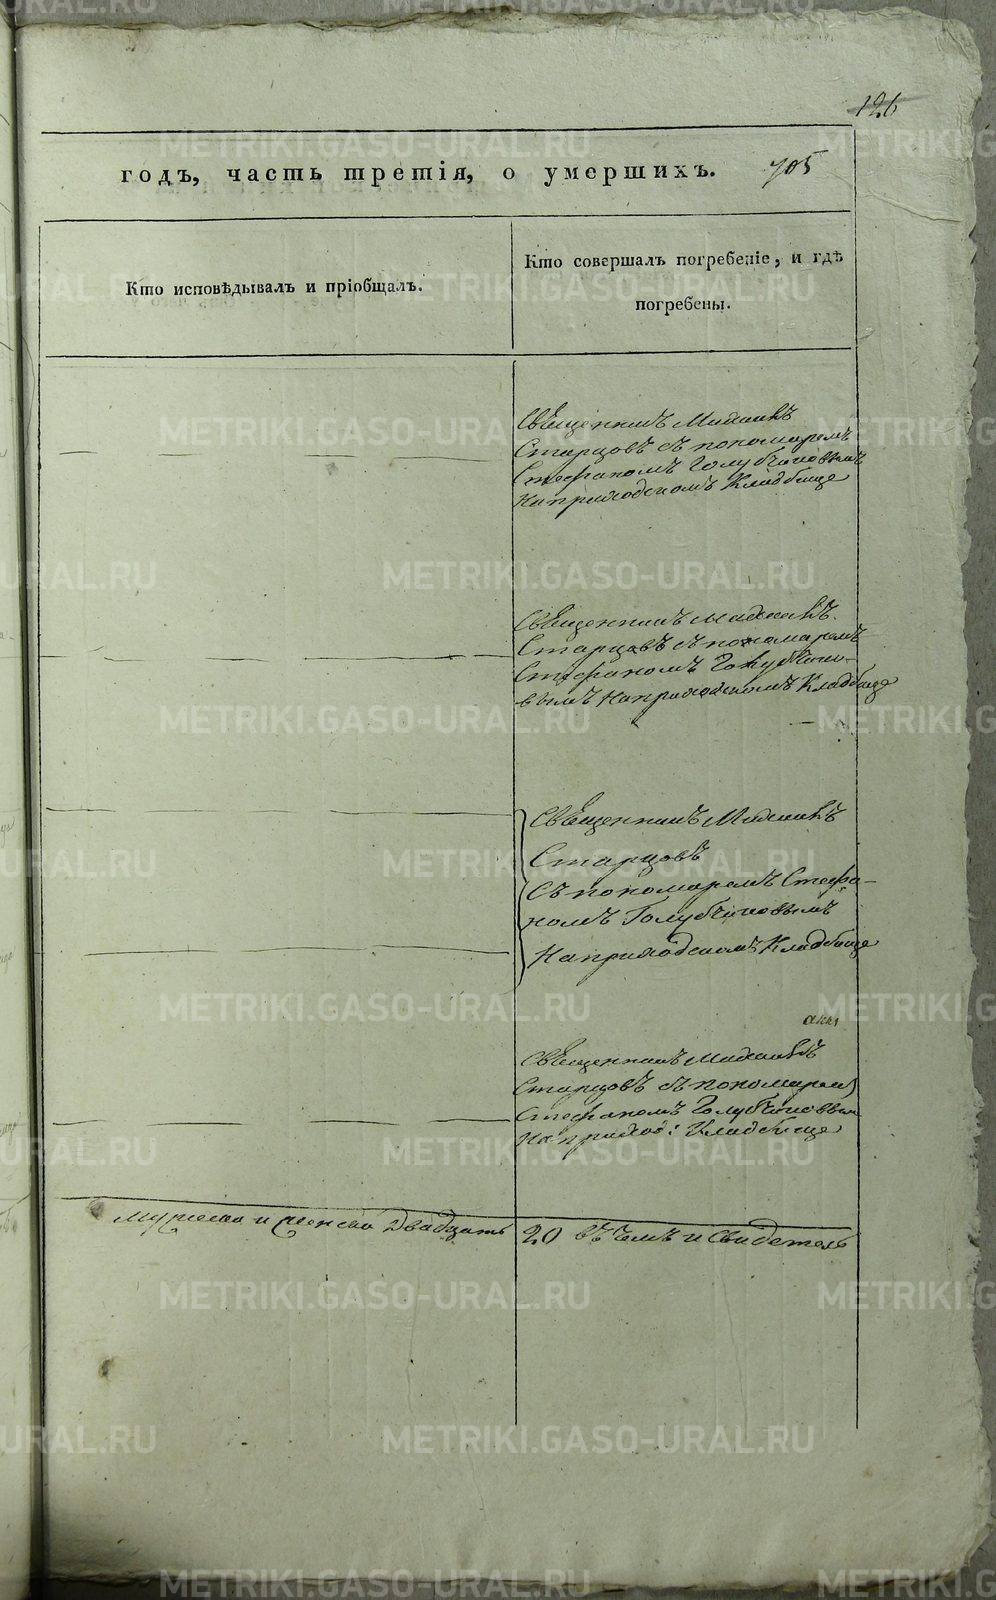 126
годъ, часть третія, о умершихъ. 705
Кто исповѣдывалъ и пріобщалъ.
Кто совершалъ погребеніе, и гдѣ
погребены.
Священникъ Михаилъ
Старцовъ съ пономаремъ
Стефаномъ Голубчиковымъ
На приходскомъ Кладбище
Священникъ Михаилъ
Старцовъ съ пономаремъ
Стефаномъ Голубчико-
вымъ На приходскомъ Кладбище
Священникъ Михаилъ
Старцовъ
Съ пономаремъ Стефа-
номъ Голубчиковымъ
На приходскомъ Кладбище
Священникъ Михаилъ
Старцовъ съ пономарем
Стефаномъ Голубчиковым
На приход: Кладбище
мужеска и женска Двадцать 20 въ чемъ и Свидетель
METRIKI.GASO-URAL.RU